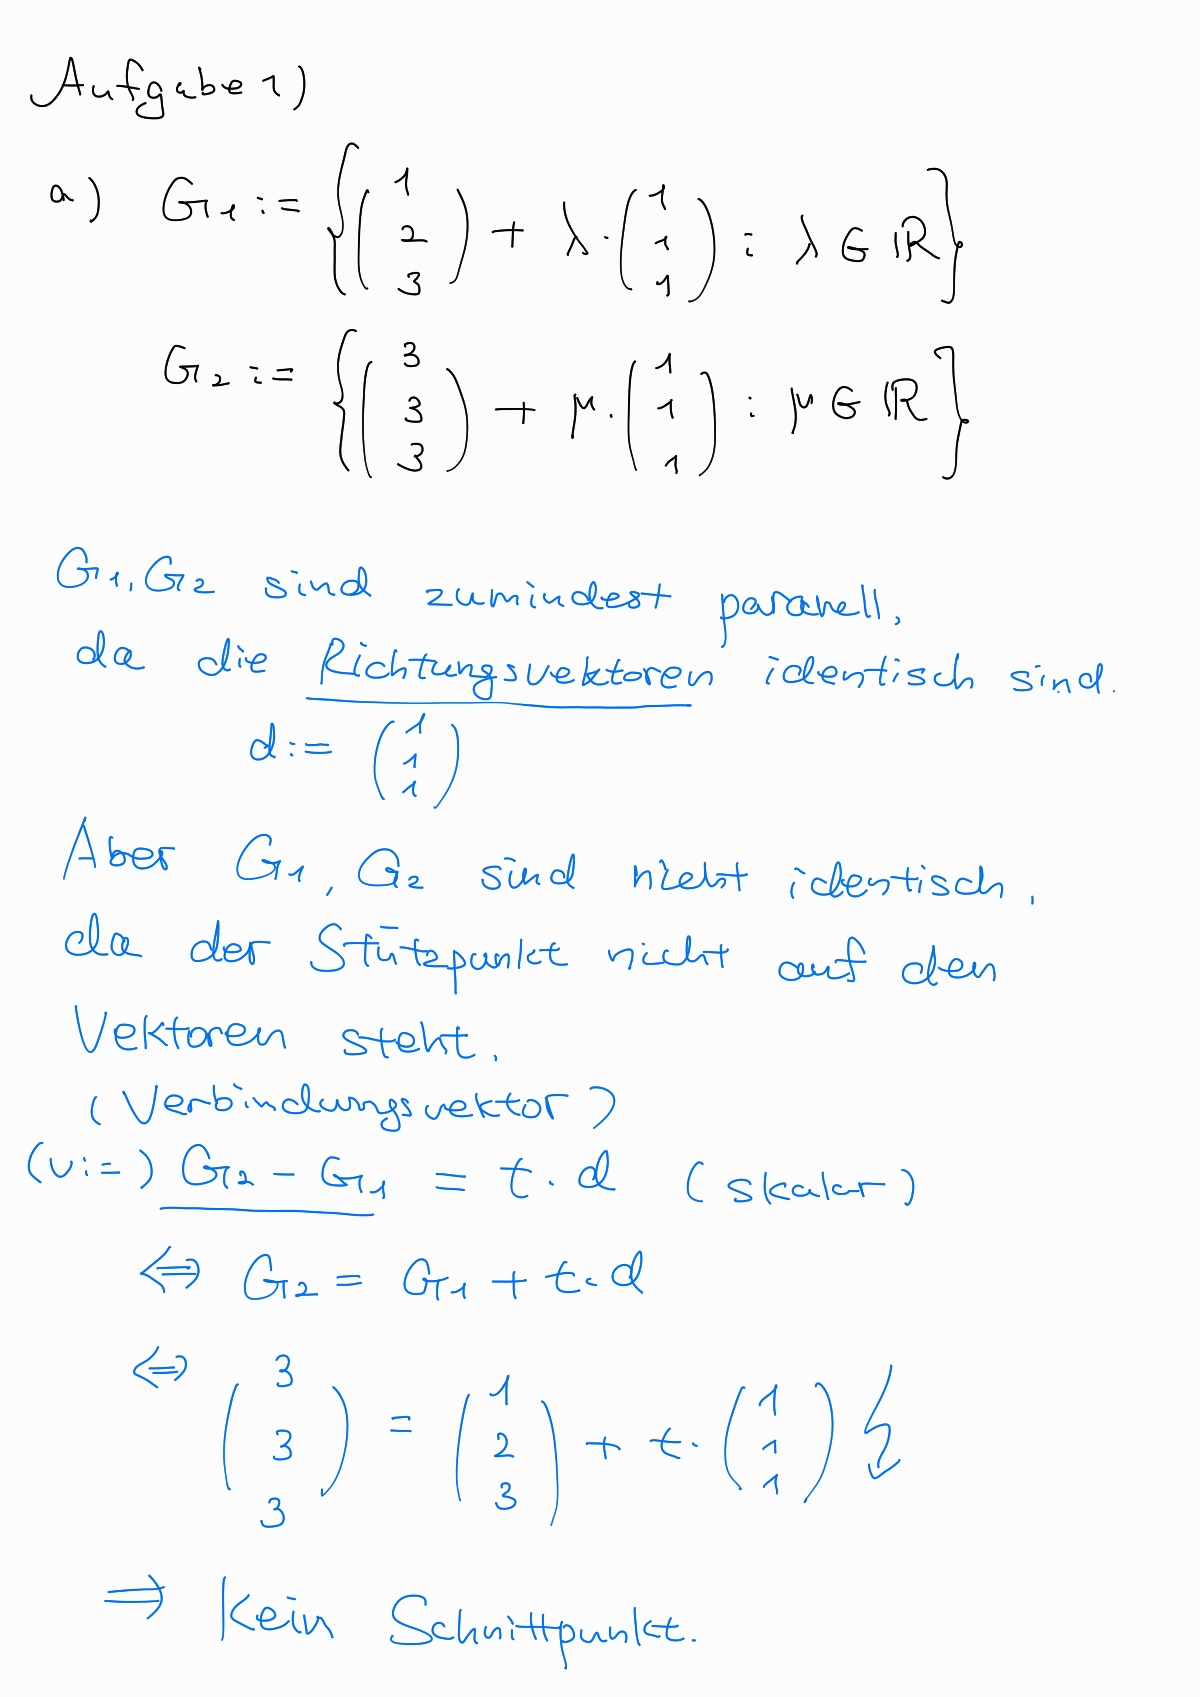 Aufgabe 1)
a) G₁ := { (1 2 3) + λ · (1 1 1) : λ ∈ ℝ }
G₂ := { (3 3 3) + μ · (1 1 1) : μ ∈ ℝ }
G₁, G₂ sind zumindest paranell,
da die Richtungsvektoren identisch sind.
d := (1 1 1)
Aber G₁, G₂ sind nicht identisch,
da der Stützpunkt nicht auf den
Vektoren steht.
(Verbindungsvektor)
(v :=) G₂ - G₁ = t · d (skalar)
⇔ G₂ = G₁ + t · d
⇔ (3 3 3) = (1 2 3) + t · (1 1 1) ↯
⇒ Kein Schnittpunkt.